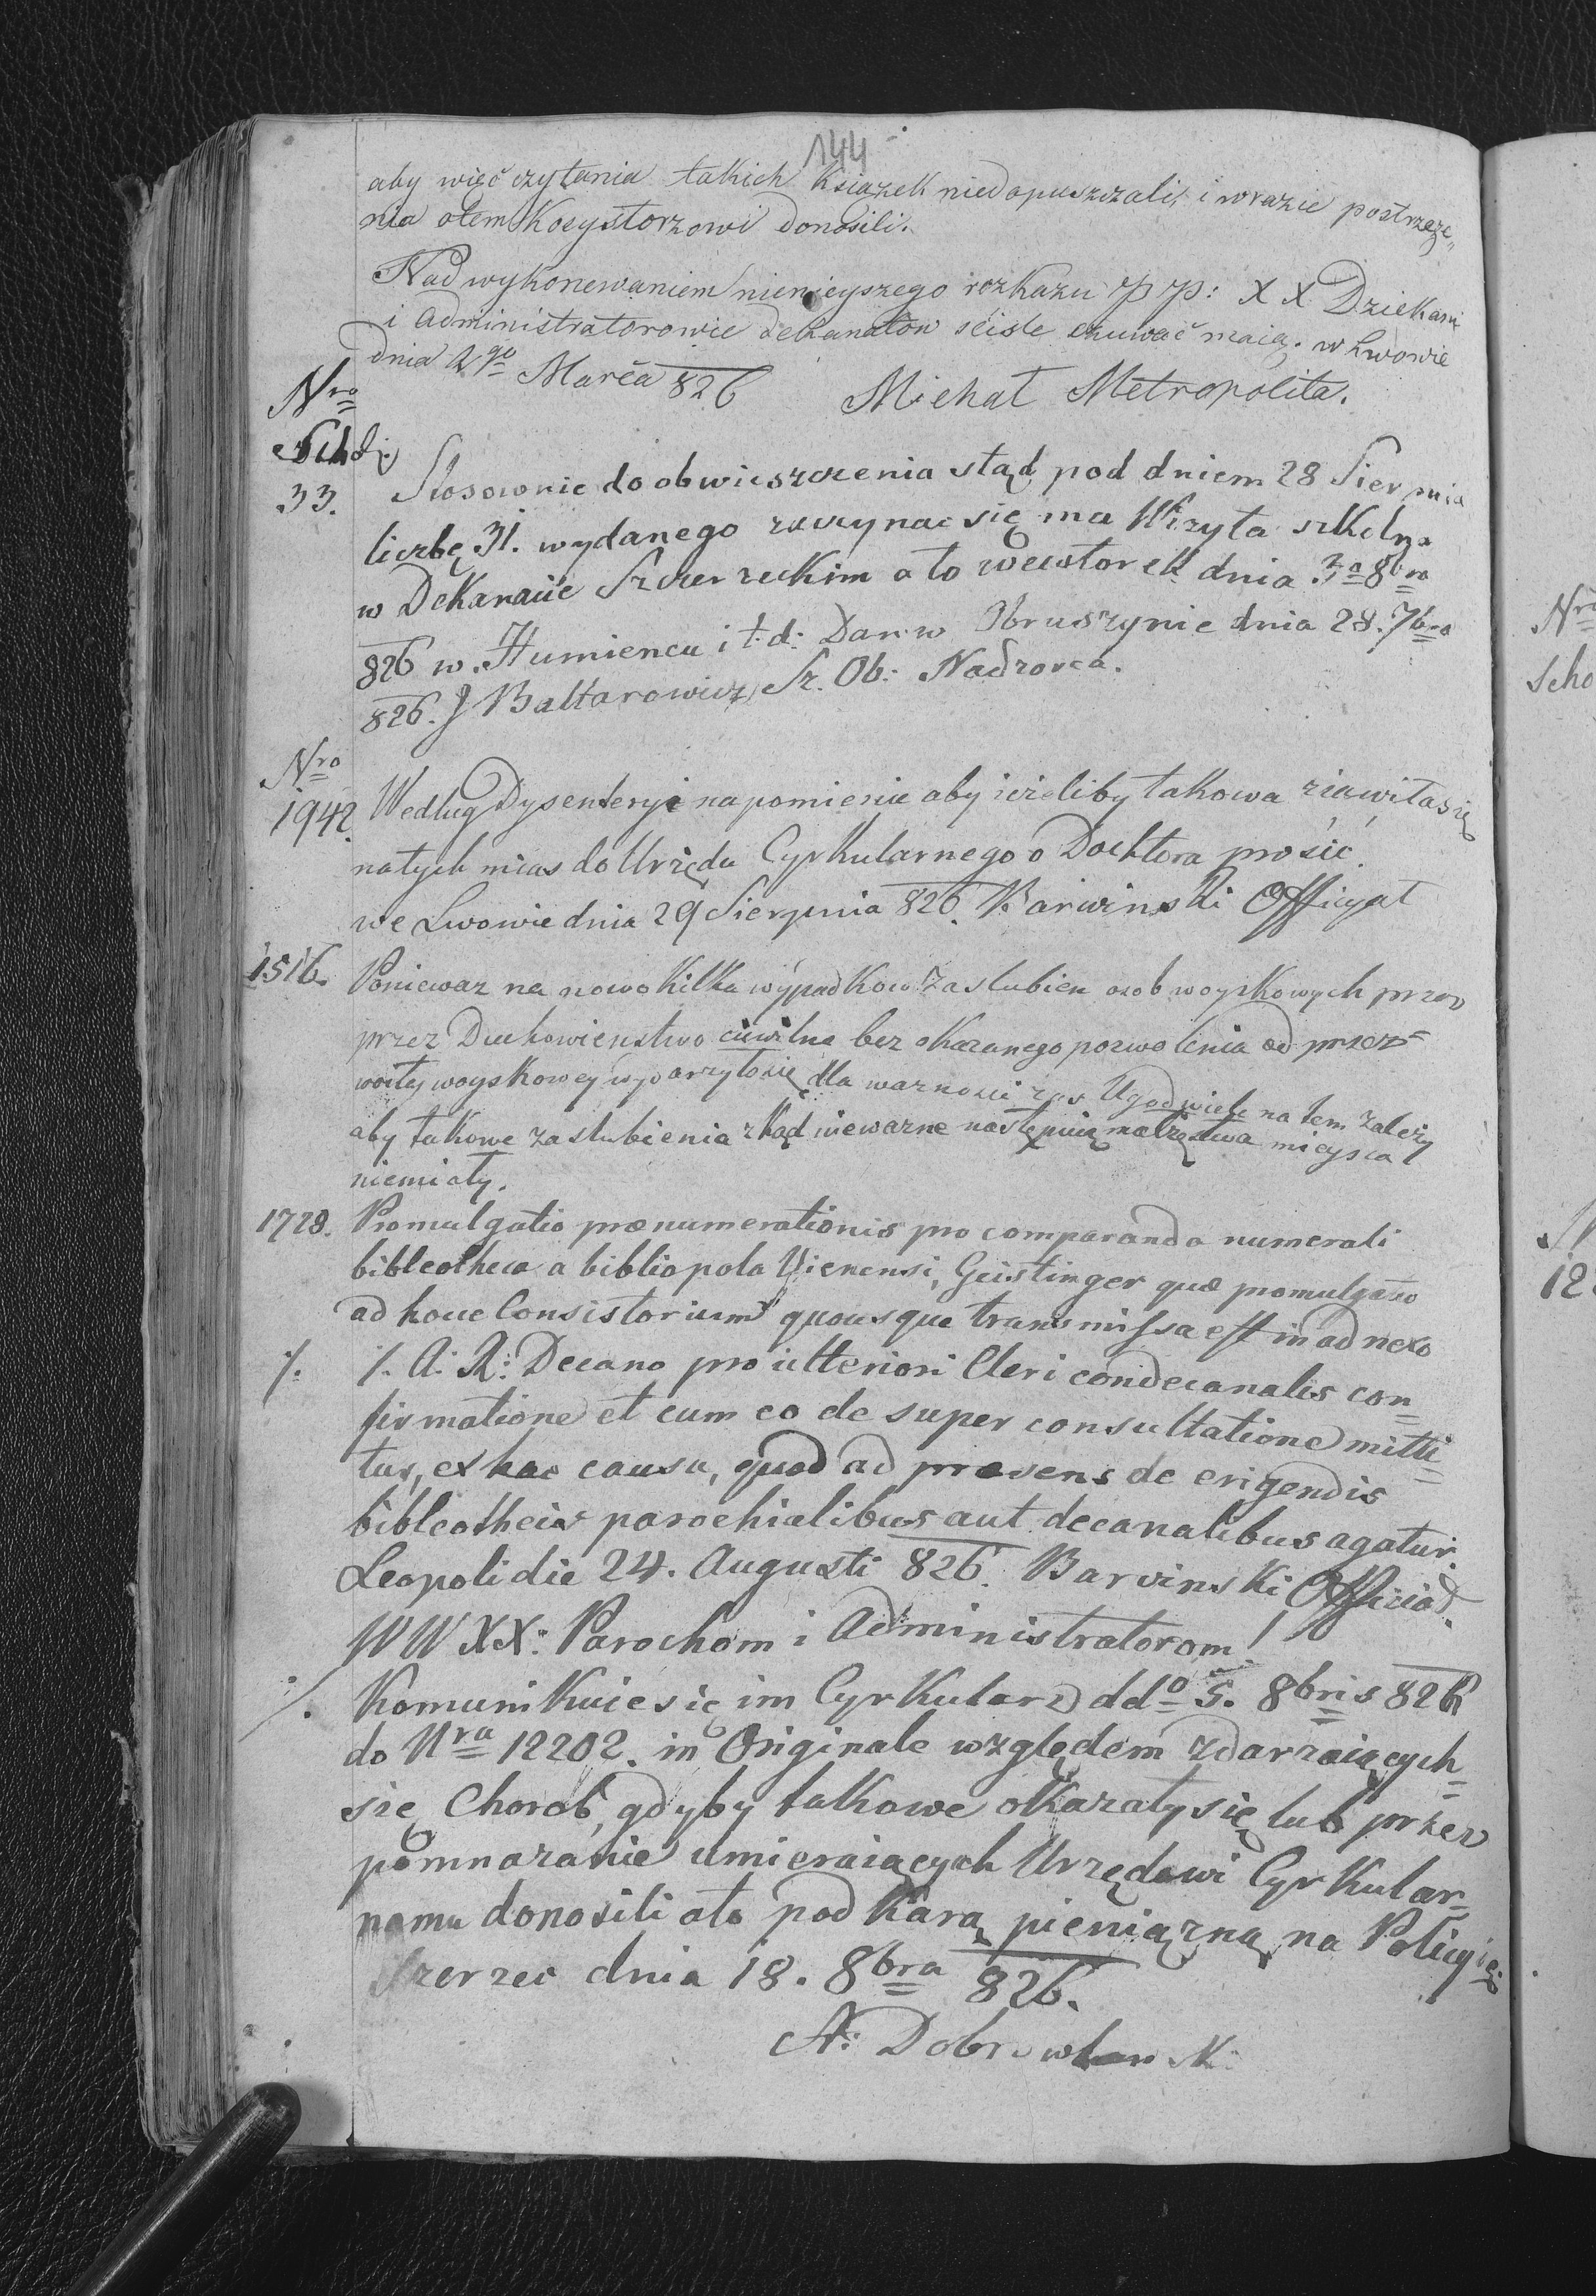 144
aby więc czytania takich Książek niedopuszczali, i w razie postrzeże„
nia otem Kosystorzowi donosili.
Nad wykonewaniem nienieyszego rozkazu PP: XX Dziekani
i Administratorowie dekanatów sciśle czuwać maią. w Lwowie
dnia 2go Marca 826 Michał Metropolita.
Nro
Schol:
33. Stosownie do obwieszczenia stąd pod dniem 28 Sierpnia
liczbę 31. wydanego zaczynać się ma Wizyta szkolna
w Dekanacie Szczerzeckim a to we wtorek dnia 3a 8bra
826 w Humiencu i t. d: Dan w Obruszynie dnia 28. 7bra
826. J Baltarowicz Sz. Ob: Nadzorca.
Nro
1942. Według Dysenteryi napomienie aby ieżeliby takowa ziawiła się
natychmias do Urzędu Cyrkularnego o Docktora prosić.
we Lwowie dnia 29 Sierpnia 826. Barwinski Officyał
1516. Poniewaz na nowo kilka wypadkow zaslubien osob woyskowych przez
przez Duchowienstwo ciwilne bez okazanego pozwolenia od przez=
woity woyskowey wydarzyło się dla warnosci zas Ugod wiele na tem zalezy
aby takowe zaslubienia zkąd niewazne następuią małzęstwa mieysca
niemiały.
1728. Promulgatio prænumerationis pro comparanda numerali
bibleotheca a bibliopola Vienensi, Geistinger quæ promulgatio
ad hocce Consistorium quousque transmissa est in adnexo
⁒ ⁒ A. R: Decano pro ulteriori Cleri condecanalis con=
firmatione et cum eo de super consultatione mitti=
tur, ex hac causa, quod ad præsens de erigendis
bibleotheis parochialibus aut decanalibus agatur.
Leopoli die 24. Augusti 826. Barvinski Official.
WW XX: Parochom i Administratorom!
⁒ Komunikuie się im Cyrkularz ddo 5. 8bris 826
do Nra 12202. in Originale względem zdarzaiących=
się Chorob, gdyby takowe okazały się lub przez
pomnazanie umieraiących Urzędowi Cyrkular=
nemu donosili ato pod Karą pieniązną na Policyi:
Szerzec dnia 18. 8bra 826.
A: Dobrowlan
Nro
Scho
12